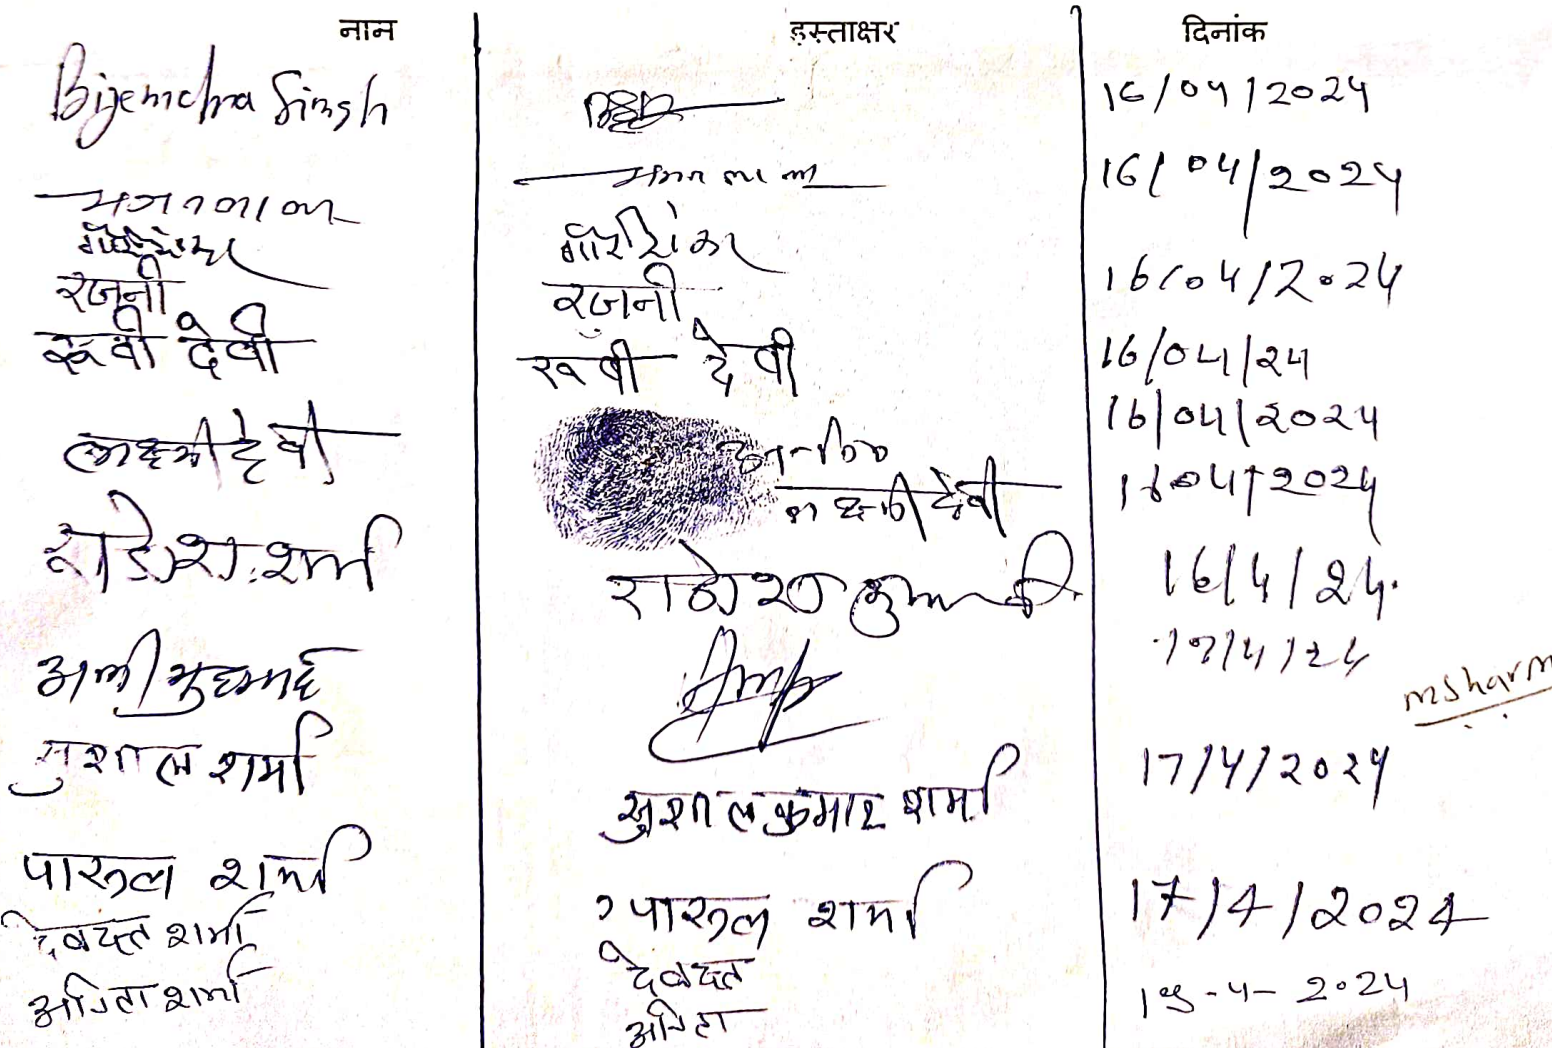 नान हस्ताक्षर दिनांक
Bijendra Singh 16/04/2024
मगनलाल मगनलाल 16/04/2024
गौरीशंकर गौरीशंकर
रजनी रजनी 16/04/2024
रूवी देवी रुबी देवी 16/04/24
16/04/2024
लक्ष्मी देवी लक्ष्मी देवी 16042024
राजेश शर्मा राजेश कुमार 16/4/24.
अली मुहम्मद 17/4/24
msharm
सुशील शर्मा सुशील कुमार शर्मा 17/4/2024
पारूल शर्मा पारूल शर्मा 17/4/2024
देवदत्त शर्मा देवदत्त
अनिता शर्मा अनिता -4-2024